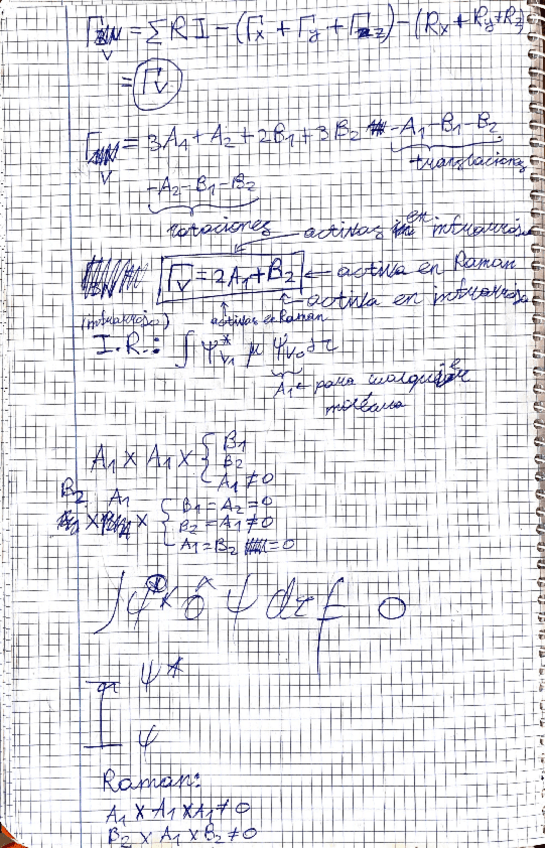 Γv = ΣRI - (Γx + Γy + Γz) - (Rx + Ry + Rz)
= Γv
Γv = 3A1 + A2 + 2B1 + 3B2 - A1 - B1 - B2
translaciones
- A2 - B1 - B2
rotaciones
activas en infrarrojo
Γv = 2A1 + B2 ← activa en Raman
← activa en infrarrojo
(infrarrojo) activas en Raman
I.R.: ∫ψ*v1 μ ψv0 dτ
A1 ← para cualquier
molécula
A1 × A1 × { B1
B2
A1 ≠ 0
B2 × A1 × { B1 = A2 = 0
B2 = A1 ≠ 0
A1 = B2 = 0
∫ψ* ô ψ dτ ≠ 0
ψ*
ψ
Raman:
A1 × A1 × A1 ≠ 0
B2 × A1 × B2 ≠ 0